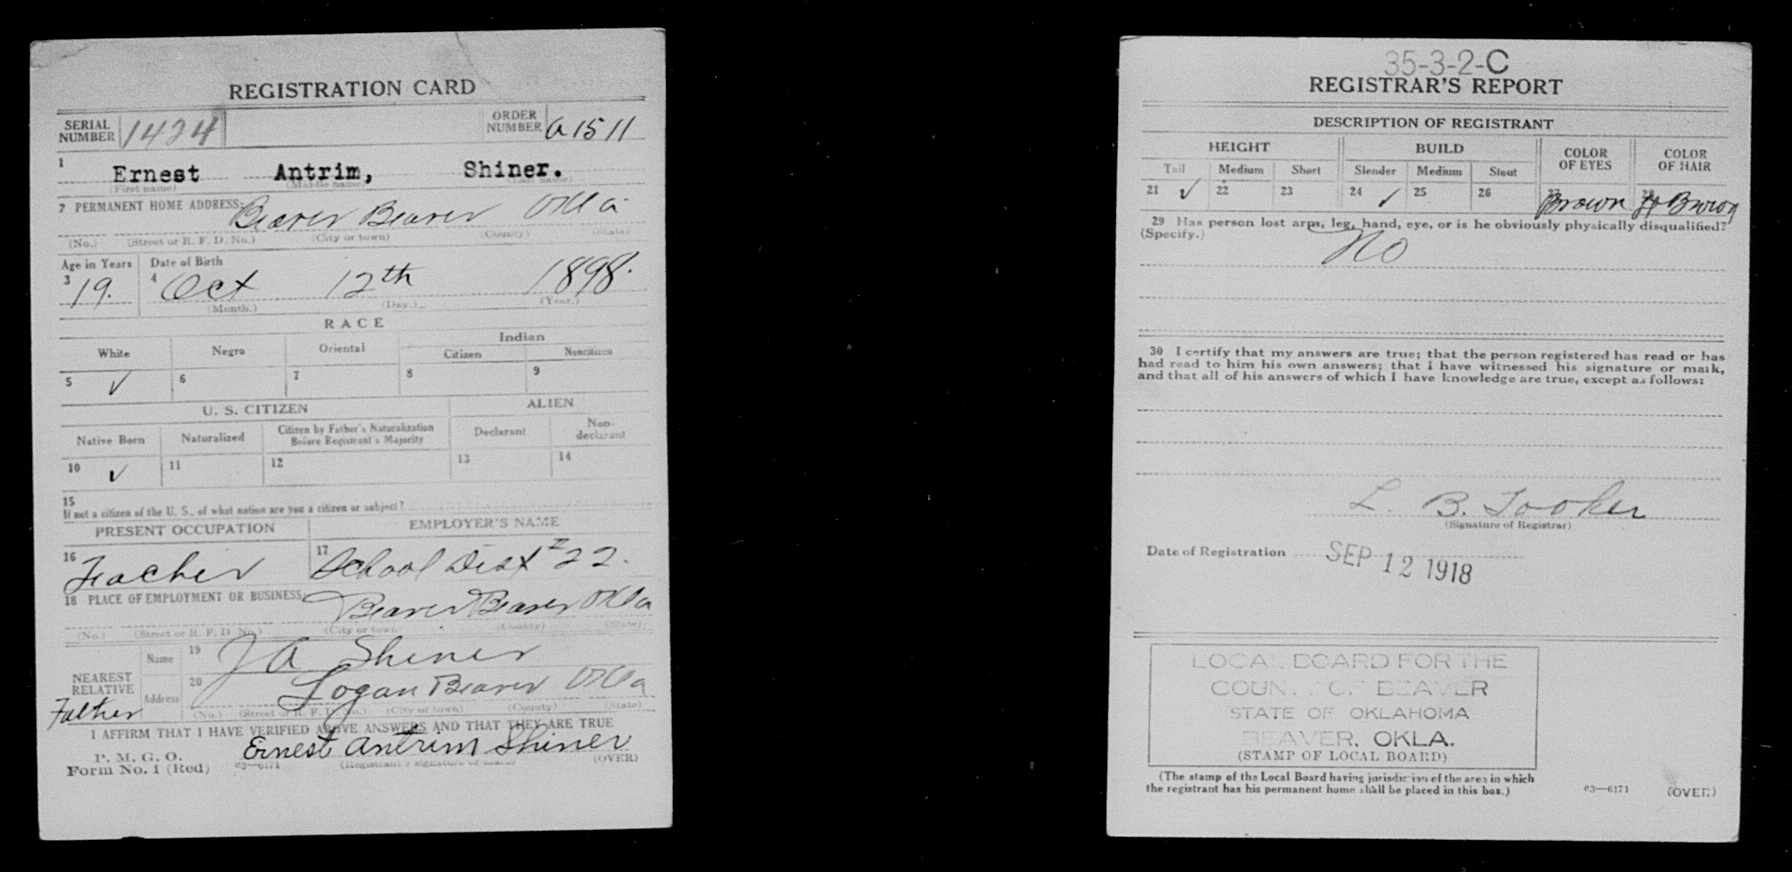 REGISTRATION CARD
SERIAL NUMBER 1424 ORDER NUMBER A1511
1 Ernest Antrim, Shiner.
(First name) (Middle name) (Last name)
2 PERMANENT HOME ADDRESS: Beaver Beaver Okla
(No.) (Street or R. F. D. No.) (City or town) (County) (State)
Age in Years Date of Birth
3 19. 4 Oct 12th 1898.
(Month.) (Day.) (Year.)
RACE
White Negro Oriental Indian
Citizen Noncitizen
5 ✓ 6 7 8 9
U. S. CITIZEN ALIEN
Native Born Naturalized Citizen by Father's Naturalization Before Registrant's Majority Declarant Non-declarant
10 ✓ 11 12 13 14
15
If not a citizen of the U. S., of what nation are you a citizen or subject?
PRESENT OCCUPATION EMPLOYER'S NAME
16 Teacher 17 School Dist # 22.
18 PLACE OF EMPLOYMENT OR BUSINESS: Beaver Beaver Okla
(No.) (Street or R. F. D. No.) (City or town) (County) (State)
NEAREST RELATIVE Father Name 19 J A Shiner
Address 20 Logan Beaver Okla
(No.) (Street or R. F. D. No.) (City or town) (County) (State)
I AFFIRM THAT I HAVE VERIFIED ABOVE ANSWERS AND THAT THEY ARE TRUE
P. M. G. O.
Form No. 1 (Red) 03—6171 Ernest Antrim Shiner
(Registrant's signature or mark) (OVER)
35-3-2-C
REGISTRAR'S REPORT
DESCRIPTION OF REGISTRANT
HEIGHT BUILD COLOR OF EYES COLOR OF HAIR
Tall Medium Short Slender Medium Stout
21 ✓ 22 23 24 ✓ 25 26 27 Brown 28 Brown
29 Has person lost arm, leg, hand, eye, or is he obviously physically disqualified?
(Specify.) No
30 I certify that my answers are true; that the person registered has read or has
had read to him his own answers; that I have witnessed his signature or mark,
and that all of his answers of which I have knowledge are true, except as follows:
L. B. Tooker
(Signature of Registrar)
Date of Registration SEP 12 1918
LOCAL BOARD FOR THE
COUNTY OF BEAVER
STATE OF OKLAHOMA
BEAVER, OKLA.
(STAMP OF LOCAL BOARD)
(The stamp of the Local Board having jurisdiction of the area in which
the registrant has his permanent home shall be placed in this box.)
03—6171 (OVER)